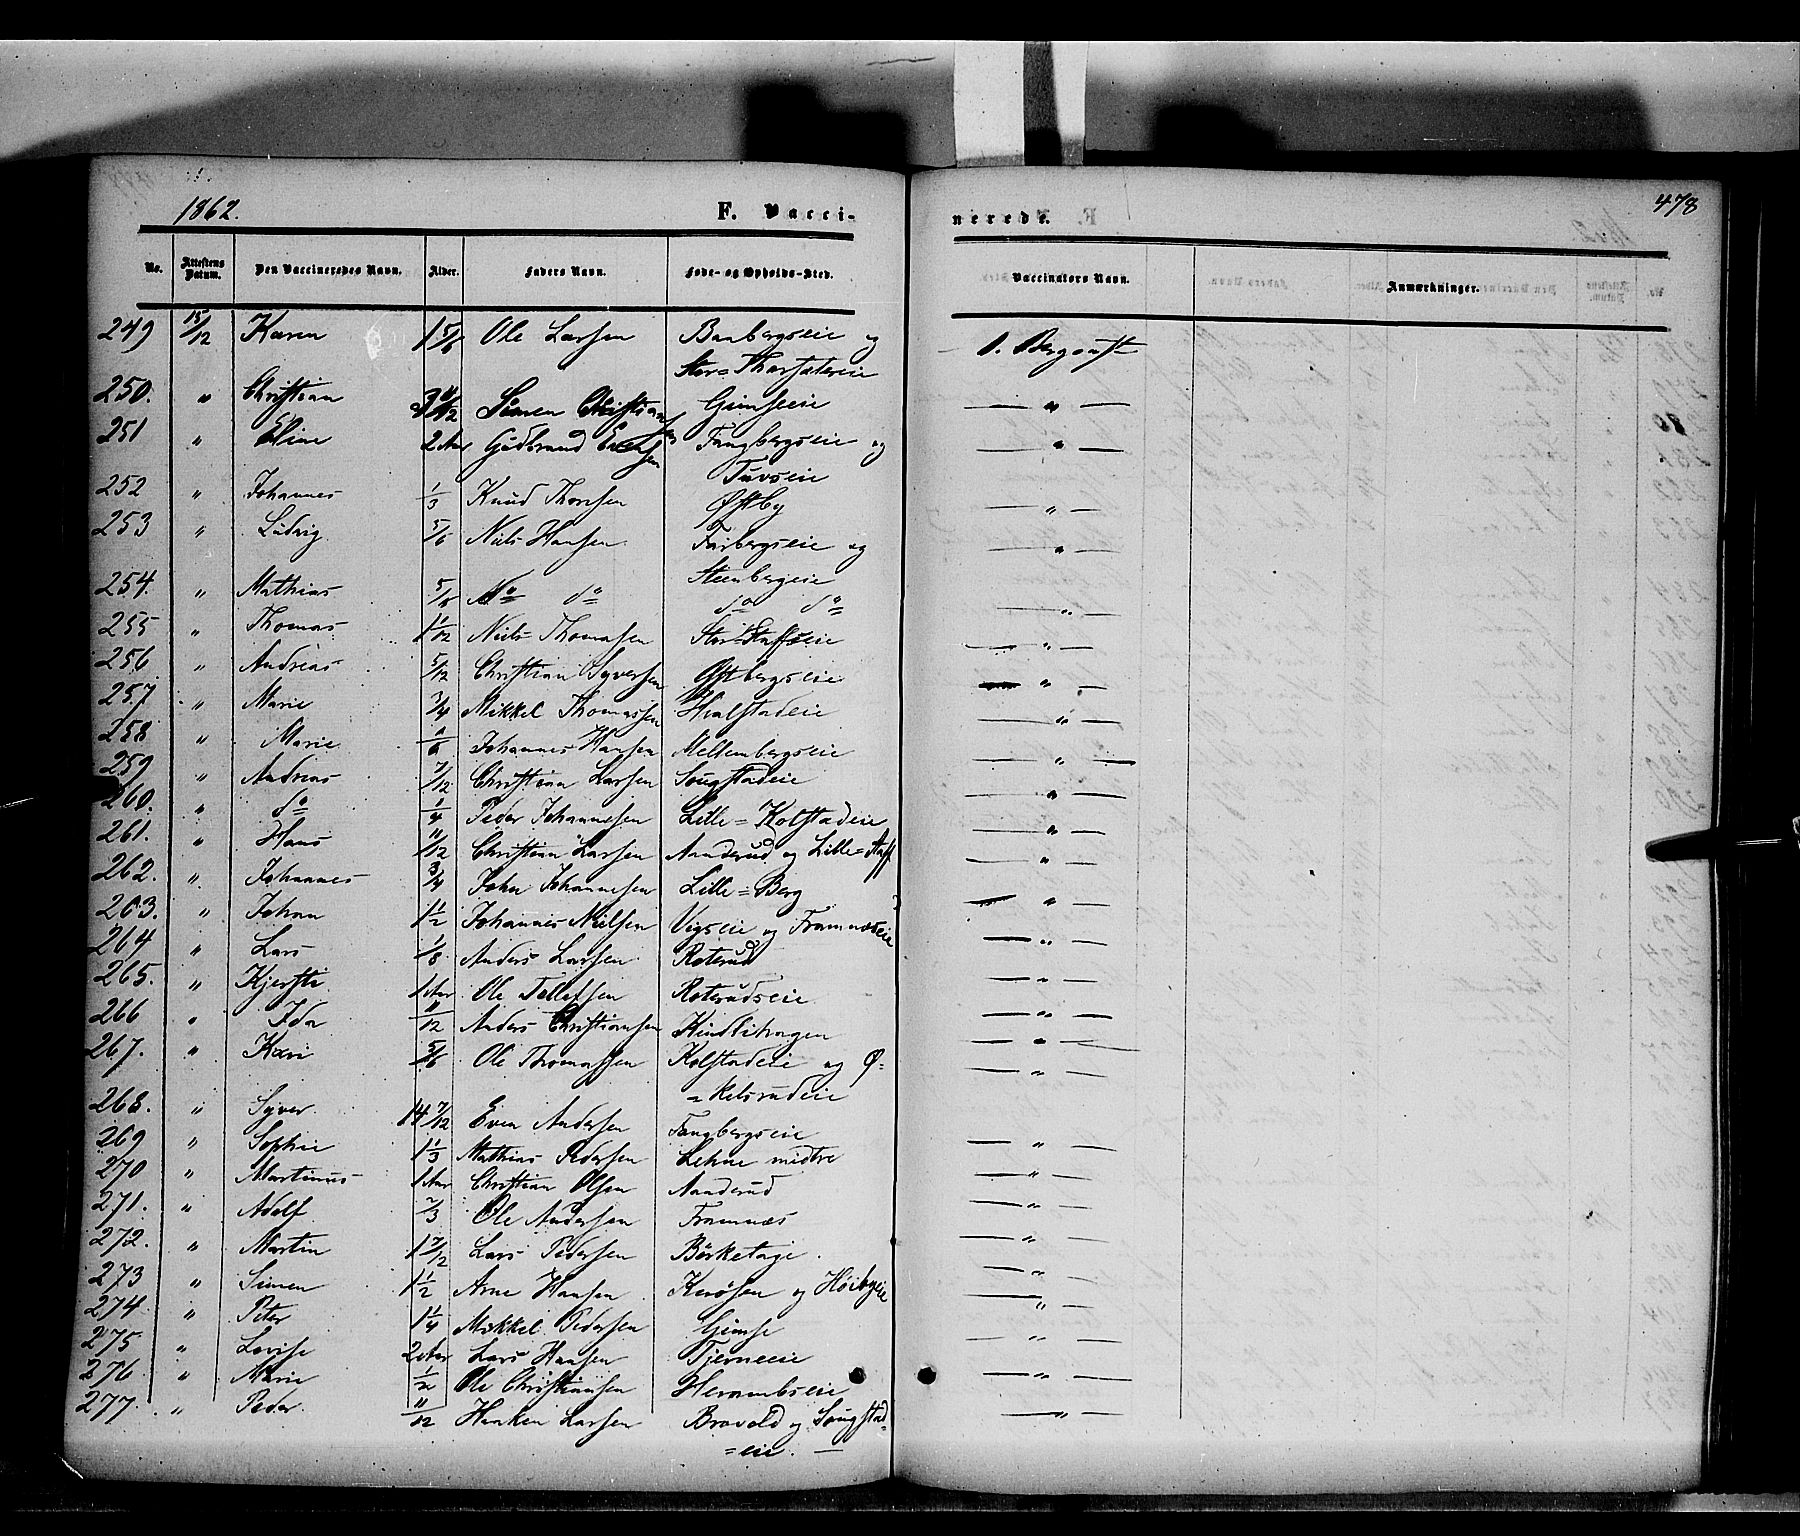 1862. F. Vacci- nerede. 478
No. Attestens Datum. Den Vaccineredes Navn. Alder. Faders Navn. Føde- og Opholds-Sted. Vaccinators Navn. Anmærkninger.
249 15/12 Karen 1 5/6 Ole Larsen Banbergseie og
Stor= Thorsætereie
250. " Christian Simen Christiansen Gimseeie — " —
251 " Eline 2 Aar Gudbrand Evensen Fangbergseie og — " —
Tuvseie
252 " Johannes 1/3 Knud Thorsen Østby — " —
253 " Ludvig 5/6 Niels Hansen Farbergseie og — " —
Steenbergeie
254. " Mathias do do do — " —
255 " Thomas 1 1/12 Niels Thomasen Stor Stafseie — " —
256 " Andreas 5/12 Christian Syversen Østbergseie — " —
257. " Marie 3/4 Mikkel Thomassen Hvalstadeie — " —
258 " Marie Johannes Hansen Mellembergseie — " —
259 " Andreas 7/12 Christian Larsen Sougstadeie — " —
260. " do 1/4 Peder Johannesen Lille= Kolstadeie — " —
261. " Hans 11/12 Christian Larsen Aanderud og Lille= Staff — " —
262. " Johannes 3/4 John Johannesen Lille= Berg — " —
263. " Johan 1 1/2 Johannes Nielsen Vigseie og Framnæseie — " —
264 " Lars Anders Larsen Roterud — " —
265. " Kjersti 1 Aar Ole Tollefsen Roterudseie — " —
266 " Ida 11/12 Anders Christiansen Kindlihagen — " —
267. " Kari 5/6 Ole Thomassen Kolstadeie og Ø- — " —
=kelsrudeie
268. " Syver 14 7/12 Even Andersen Fangbergseie — " —
269 " Sophie 1 1/3 Mathias Pedersen Lehne midtre — " —
270 " Martinus 1 Aar Christian Olsen Aanderud — " —
271. " Adolf 2/3 Ole Andersen Framnæs — " —
272. " Martin 1 7/12 Lars Pedersen Börketage — " —
273 " Simen 1 1/2 Arne Hansen og Höibyeie — " —
274 " Peter 1 1/4 Mikkel Pedersen Gimse — " —
275 " Lovise 2 Aar Lars Hansen Tjerneeie — " —
276 " Marie 1/2 Ole Christiansen Herambseie — " —
277. " Peder 11/12 Haaken Larsen Bravold og Sougstad= — " —
=eie. —